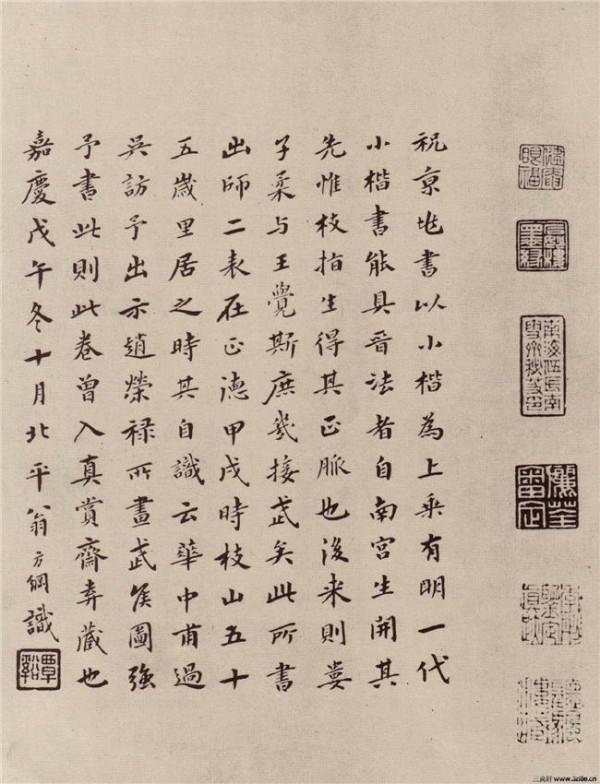 南海伍氏南
雪齋秘笈印
儷荃
審定
祝京兆書以小楷為上乘有明一代
小楷書能具晉法者自南宮生開其
先惟枝指生得其正脈也後來則婁
子柔与王覺斯庶幾接武矣此所書
出師二表在正德甲戌時枝山五十
五歲里居之時其自識云華中甫過
吳訪予出示趙榮祿所畫武侯圖強
予書此則此卷曾入真賞齋弆藏也
嘉慶戊午冬十月北平翁方綱識
覃谿